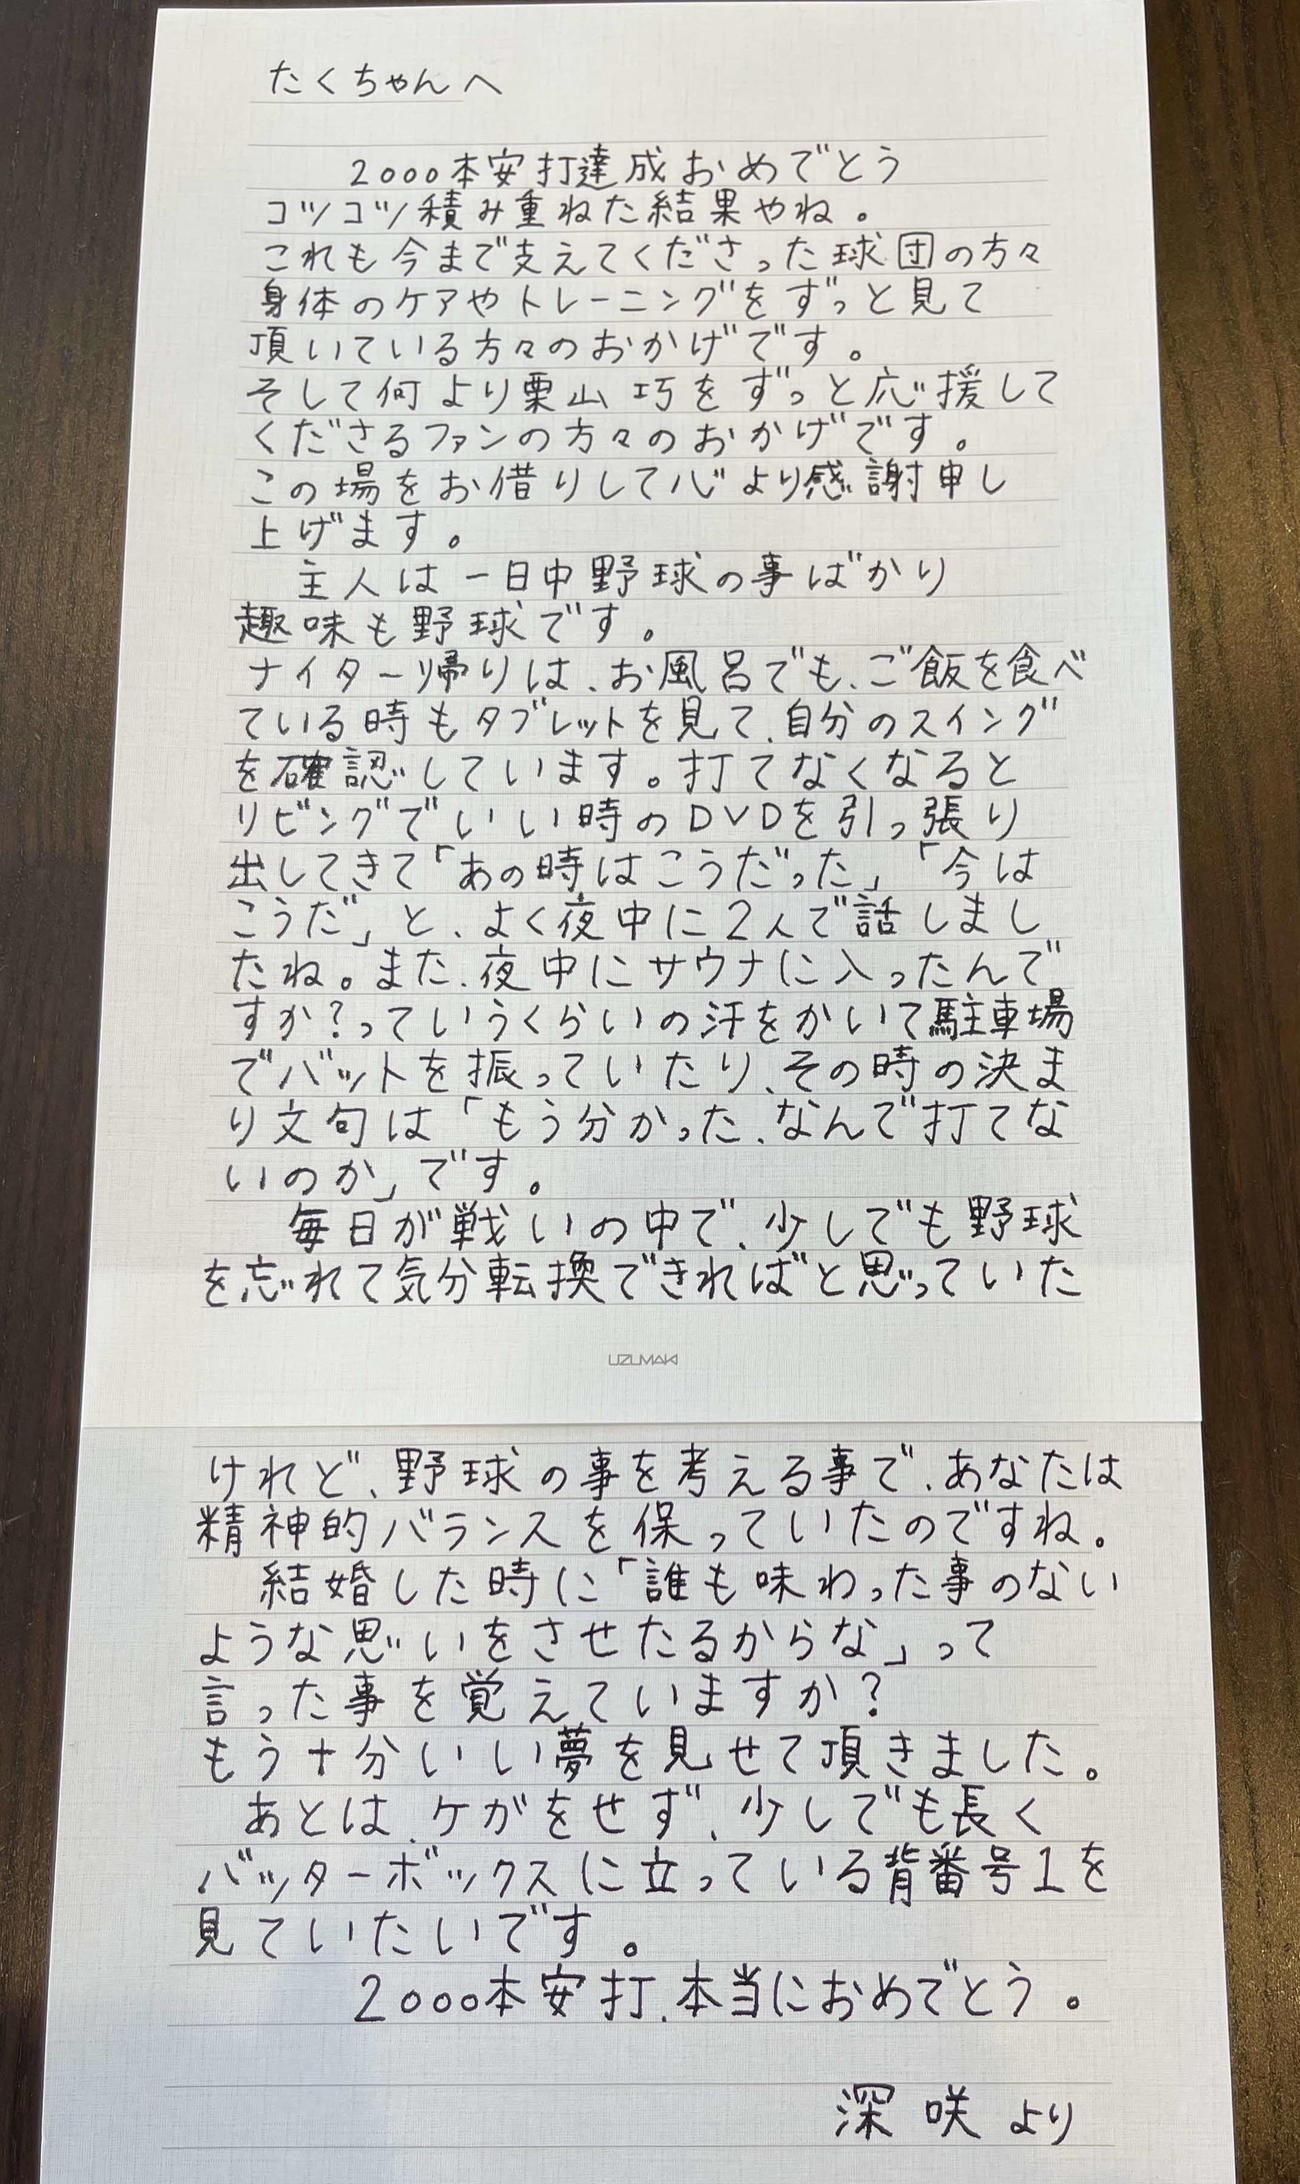 たくちゃんへ
2000本安打達成おめでとう
コツコツ積み重ねた結果やね。
これも今まで支えてくださった球団の方々
身体のケアやトレーニングをずっと見て
頂いている方々のおかげです。
そして何より栗山巧をずっと応援して
くださるファンの方々のおかげです。
この場をお借りして心より感謝申し
上げます。
主人は一日中野球の事ばかり
趣味も野球です。
ナイター帰りは、お風呂でも、ご飯を食べ
ている時もタブレットを見て、自分のスイング
を確認しています。打てなくなると
リビングでいい時のDVDを引っ張り
出してきて「あの時はこうだった」「今は
こうだ」と、よく夜中に2人で話しまし
たね。また、夜中にサウナに入ったんで
すか?っていうくらいの汗をかいて駐車場
でバットを振っていたり、その時の決ま
り文句は「もう分かった、なんで打てな
いのか」です。
毎日が戦いの中で、少しでも野球
を忘れて気分転換できればと思っていた
UZUMAKI
けれど、野球の事を考える事で、あなたは
精神的バランスを保っていたのですね。
結婚した時に「誰も味わった事のない
ような思いをさせたるからな」って
言った事を覚えていますか?
もう十分いい夢を見せて頂きました。
あとは、ケガをせず、少しでも長く
バッターボックスに立っている背番号1を
見ていたいです。
2000本安打、本当におめでとう。
深咲より